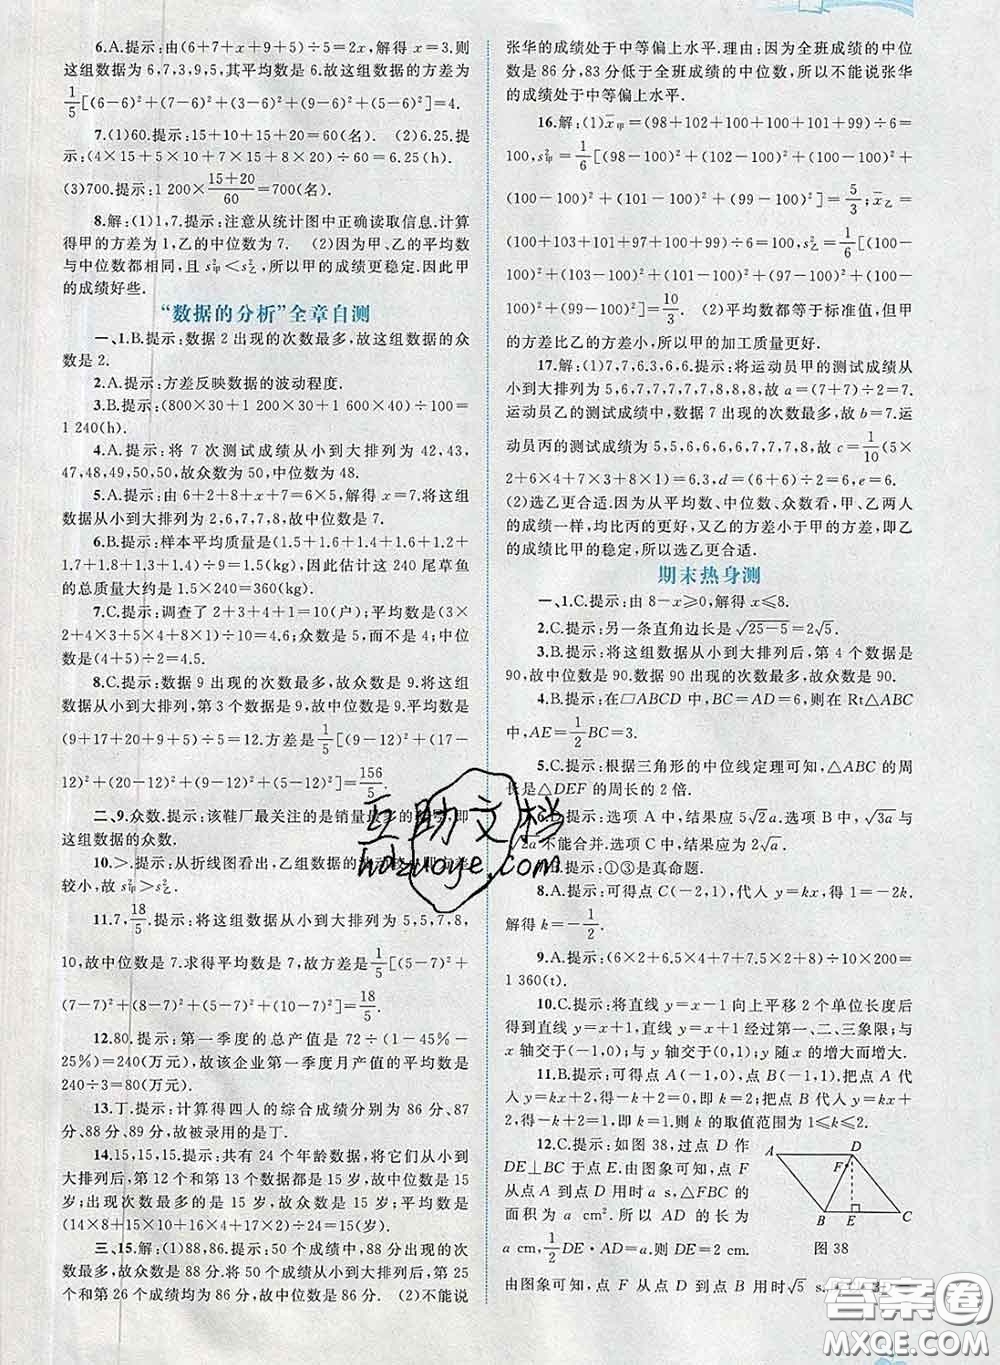 6.A.提示:由(6+7+x+9+5)÷5=2x,解得 x=3.则
这组数据为 6,7,3,9,5,其平均数是 6.故这组数据的方差为
1/5[(6-6)²+(7-6)²+(3-6)²+(9-6)²+(5-6)²]=4.
7.(1)60.提示:15+10+15+20=60(名). (2)6.25.提
示:(4×15+5×10+7×15+8×20)÷60=6.25(h).
(3)700.提示:1 200×(15+20)/60=700(名).
8.解:(1)1,7.提示:注意从统计图中正确读取信息.计算
得甲的方差为 1,乙的中位数为 7. (2)因为甲、乙的平均数
与中位数都相同,且 s²甲<s²乙,所以甲的成绩更稳定.因此甲
的成绩好些.
“数据的分析”全章自测
一、1.B.提示:数据 2 出现的次数最多,故这组数据的众
数是 2.
2.A.提示:方差反映数据的波动程度.
3.B.提示:(800×30+1 200×30+1 600×40)÷100=
1 240(h).
4.A.提示:将 7 次测试成绩从小到大排列为 42,43,
47,48,49,50,50,故众数为 50,中位数为 48.
5.A.提示:由 6+2+8+x+7=6×5,解得 x=7.将这组
数据从小到大排列为 2,6,7,7,8,故中位数是 7.
6.B.提示:样本平均质量是(1.5+1.6+1.4+1.6+1.2+
1.7+1.8+1.3+1.4)÷9=1.5(kg),因此估计这 240 尾草鱼
的总质量大约是 1.5×240=360(kg).
7.C.提示:调查了 2+3+4+1=10(户);平均数是(3×
2+4×3+5×4+8×1)÷10=4.6;众数是 5,而不是 4;中位
数是(4+5)÷2=4.5.
8.C.提示:数据 9 出现的次数最多,故众数是 9.将这组
数据从小到大排列,第 3 个数据是 9,故中位数是 9.平均数是
(9+17+20+9+5)÷5=12.方差是1/5[(9-12)²+(17-
12)²+(20-12)²+(9-12)²+(5-12)²]=156/5.
二、9.众数.提示:该鞋厂最关注的是销量最多的,即
这组数据的众数.
10.>.提示:从折线图看出,乙组数据的波动较小,即方差
较小,故 s²甲>s²乙.
11.7,18/5.提示:将这组数据从小到大排列为 5,5,7,8,
10,故中位数是 7.求得平均数是 7,故方差是1/5[(5-7)²+
(5-7)²+(7-7)²+(8-7)²+(10-7)²]=18/5.
12.80.提示:第一季度的总产值是 72÷(1-45%-
25%)=240(万元),故该企业第一季度月产值的平均数是
240÷3=80(万元).
13.丁.提示:计算得四人的综合成绩分别为 86,87,
87,88,89分,故被录用的是丁.
14.15,15,15.提示:共有 24 个年龄数据,将它们从小到
大排列后,第 12 个和第 13 个数据都是 15 岁,故中位数是 15
岁;出现次数最多的是 15 岁,故众数是 15 岁;平均数是
(14×8+15×10+16×4+17×2)÷24=15(岁).
三、15.解:(1)88,86.提示:50 个成绩中,88 分出现的次
数最多,故众数是 88 分.将 50 个成绩从小到大排列后,第 25
个和第 26 个成绩均为 86 分,故中位数为 86 分. (2)不能说
张华的成绩处于中等偏上水平.理由:因为全班成绩的中位
数是 86 分,83 分低于全班成绩的中位数,所以不能说张华
的成绩处于中等偏上水平.
16.解:(1)x̄甲=(98+102+100+100+101+99)÷6=
100,s²甲=1/6[(98-100)²+(102-100)²+(100-100)²+
(100-100)²+(101-100)²+(99-100)²]=5/3;x̄乙=
(100+103+101+97+100+99)÷6=100,s²乙=1/6[(100-
100)²+(103-100)²+(101-100)²+(97-100)²+(100-
100)²+(99-100)²]=10/3. (2)平均数都等于标准值,但甲
的方差比乙的方差小,所以甲的加工质量更好.
17.解:(1)7,7,6.3,6,6.提示:将运动员甲的测试成绩从
从小到大排列为 5,6,7,7,7,7,7,8,8,8,故 a=(7+7)÷2=7.
运动员乙的测试成绩中,数据 7 出现的次数最多,故 b=7.运
动员丙的测试成绩为 5,5,6,6,6,6,7,7,7,8,故 c=1/10(5×
2+6×4+7×3+8×1)=6.3,d=(6+6)÷2=6,e=6.
(2)选乙更合适.因为从平均数、中位数、众数看,甲、乙两人
的成绩一样,均比丙的更好,又乙的方差小于甲的方差,即乙
的成绩比甲的稳定,所以选乙更合适.
期末热身测
一、1.C.提示:由 8-x≥0,解得 x≤8.
2.C.提示:另一条直角边长是 √(25-5)=2√5.
3.B.提示:将这组数据从小到大排列后,第 4 个数据是
90,故中位数是 90.数据 90 出现的次数最多,故众数是 90.
4.B.提示:在□ABCD 中,BC=AD=6,则在 Rt△ABC
中,AE=1/2BC=3.
5.C.提示:根据三角形的中位线定理可知,△ABC 的周
长是△DEF 的周长的 2 倍.
6.D.提示:选项 A 中,结果应为 5√2a.选项 B 中,√3a与
√2a不能合并.选项 C 中,结果应为 2√a.
7.B.提示:①③是真命题.
8.A.提示:可得点 C(-2,1),代入 y=kx,得 1=-2k.
解得 k=-1/2.
9.A.提示:(6×2+6.5×4+7×5+7.5×2+8×3)÷16×200=
1 360(t).
10.C.提示:将直线 y=x-1 向上平移 2 个单位长度后
得到直线 y=x+1,直线 y=x+1 经过第一、二、三象限;与
x 轴交于(-1,0);与 y 轴交于(0,1);y 随 x 的增大而增大.
11.B.提示:可得点 A(-1,0),点 B(-1,1).把点 A 代
入 y=kx+2,得-k+2=0,即 k=2;把点 B 代入 y=kx+2,
得-k+2=1,即 k=1.则 k 的取值范围为 1≤k≤2.
12.C.提示:如图 38,过点 D 作
DE⊥BC 于点 E.由图象可知,点 F
从点 A 到点 D 用时 a s,△FBC 的
面积为 a cm².所以 AD 的长为
a cm,1/2DE·AD=a.则 DE=2 cm.
由图象可知,点 F 从点 D 到点 B 用时√5 s.
A
D
F
B
E
C
图 38
互助文档
hdzuoye.com
答案圈
MXQE.COM